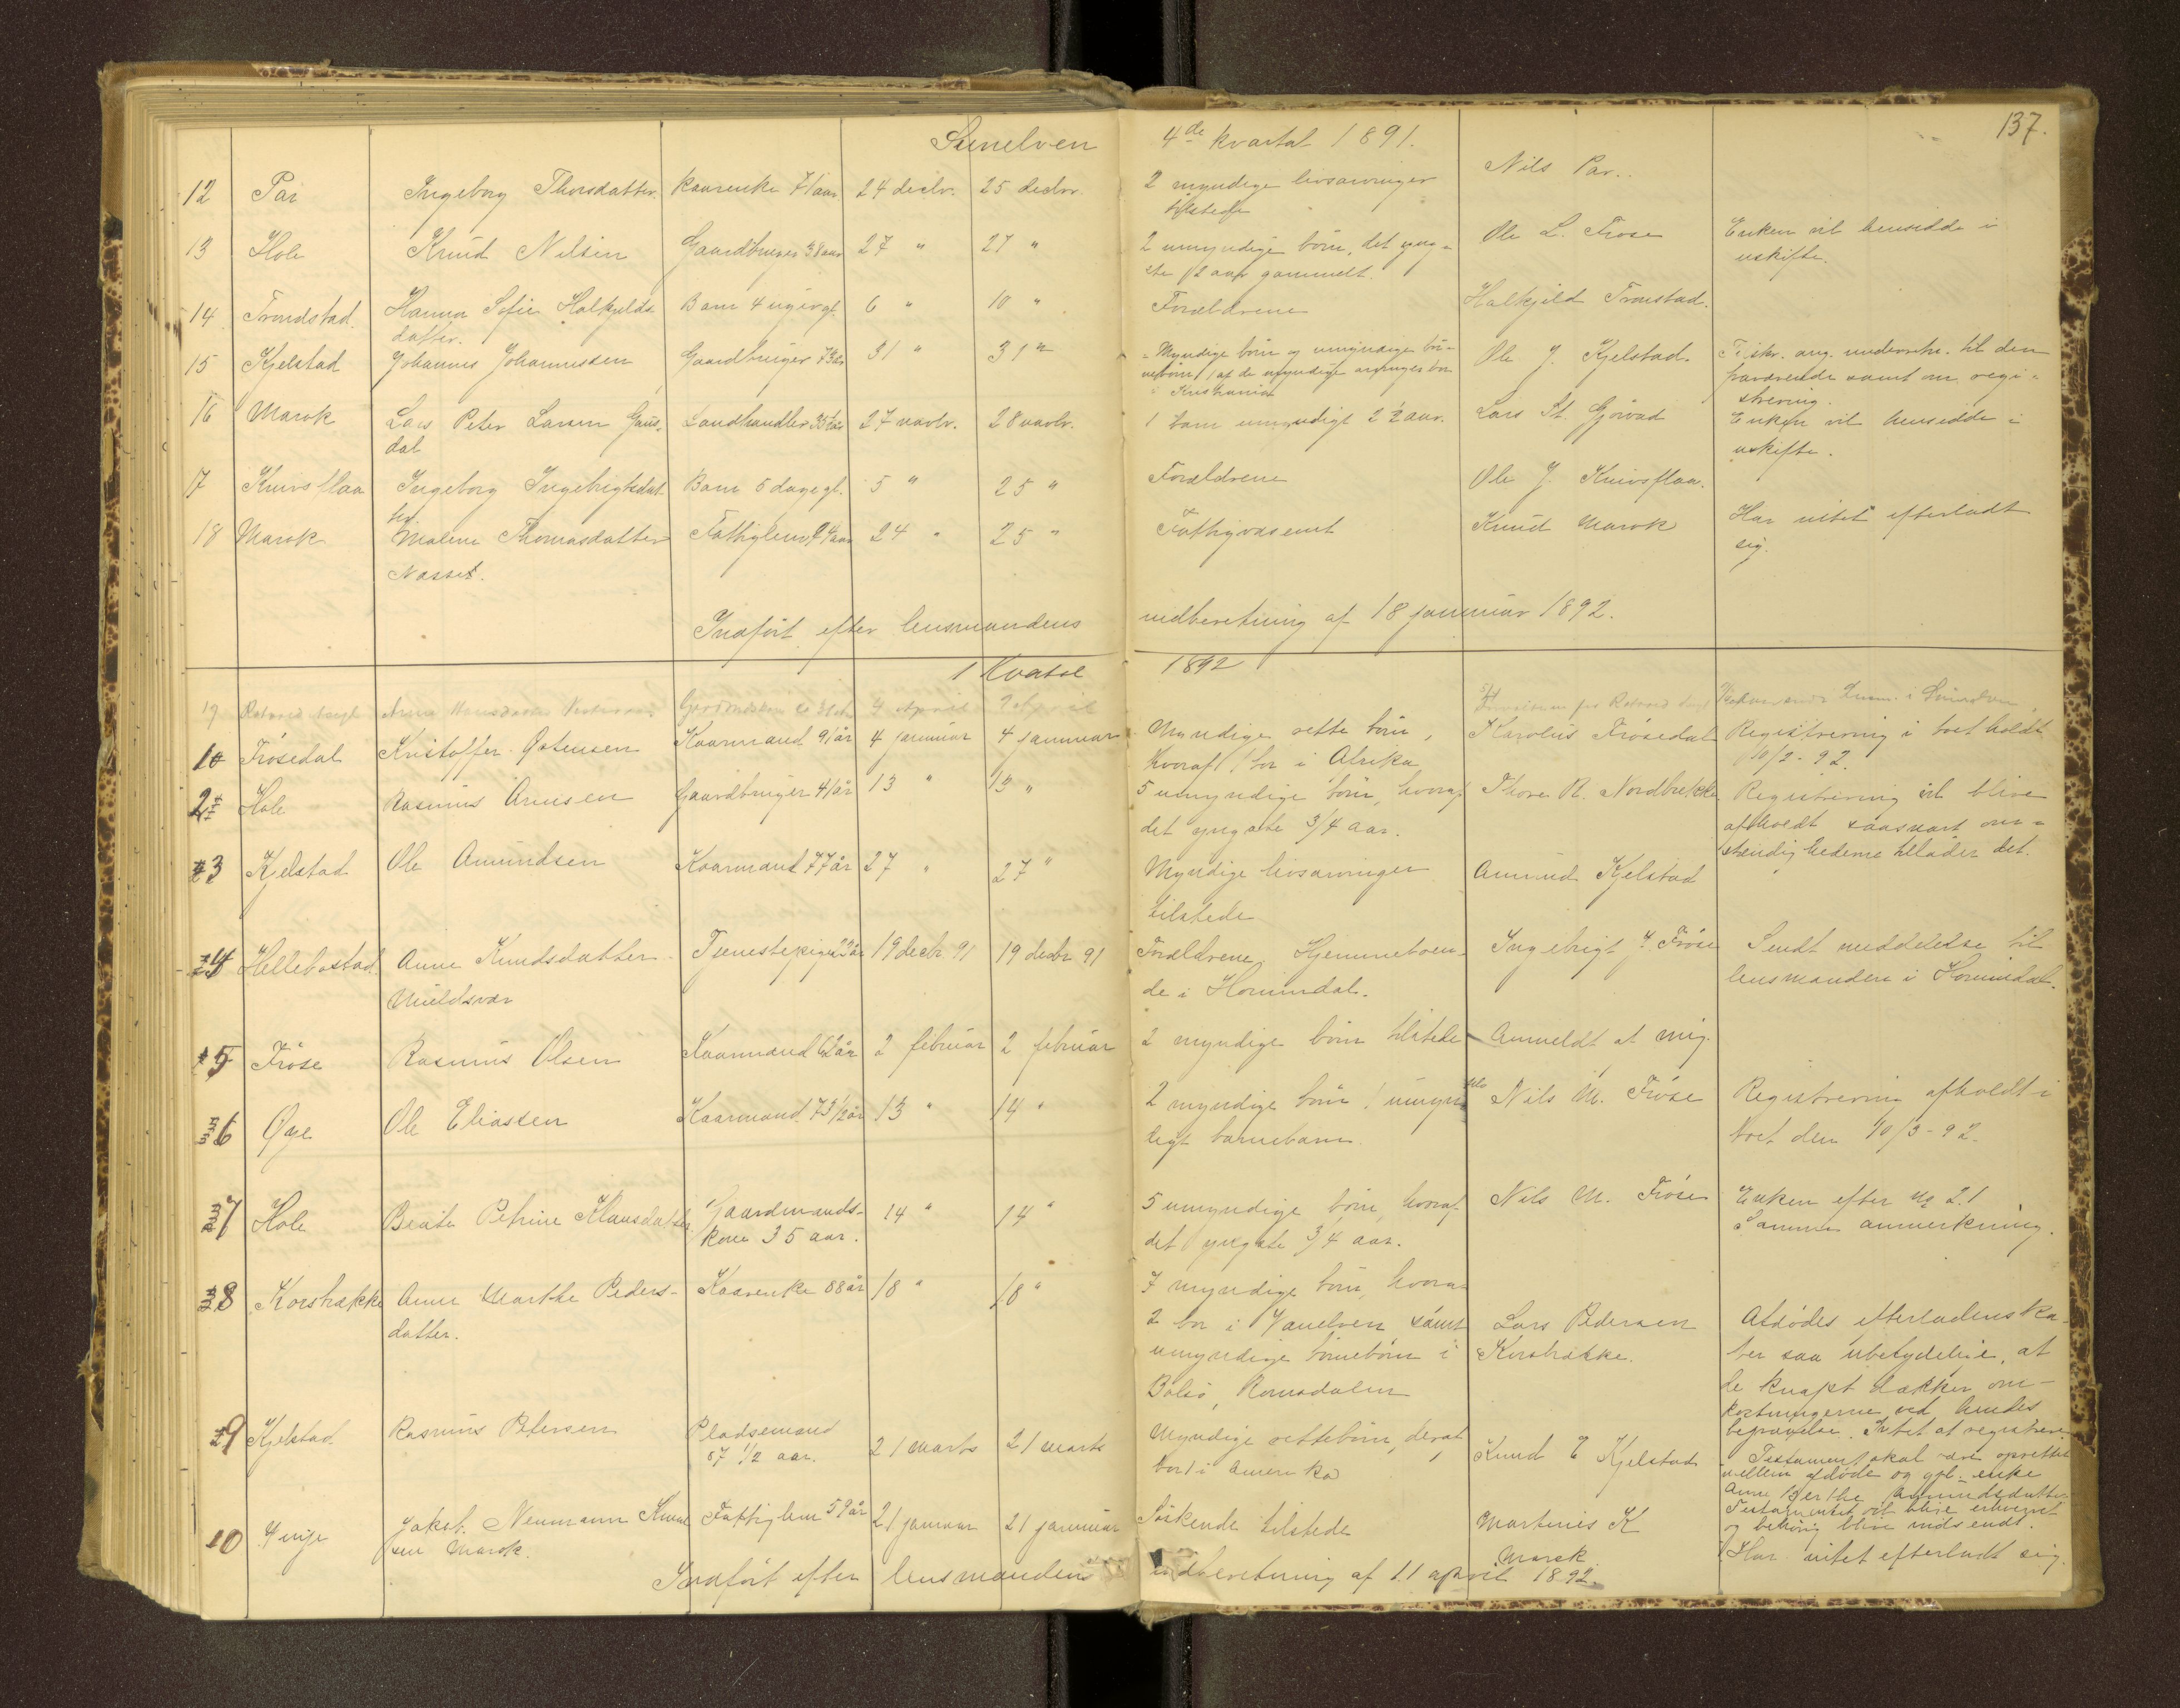 137.
Sunelven 4de kvartal 1891.
12 Par Ingeborg Thorsdatter kaarenke 71 aar 24 decbr. 25 decbr. 2 myndige livsarvinger Nils Par.
tilstede
13 Hole Knud Nilsen Gaardbruger 38 aar 27 " 27 " 2 umyndige børn, det yng- Ole L. Frøse Enken vil hensidde i
ste 1/2 aar gammelt. uskifte.
14 Trondstad. Hanna Sofie Halkjelds Barn 4 uger gl. 6 " 10 " Forældrene Halkjeld Tronstad.
datter.
15 Kjelstad Johannes Johannessen Gaardbruger 73 aar 31 " 31 " Myndige børn og umyndige bør- Ole J. Kjelstad. Tilskr. ang. underretn. til den
nebørn, 1 af de myndige arvinger bor fraværende samt om regi-
i Kristiania strering.
16 Marok Lars Peter Larsen Gaus- Landhandler 35 aar 27 novbr. 28 novbr. 1 barn umyndigt 2 1/2 aar. Lars St. Gjørvad Enken vil hensidde i
dal uskifte.
17 Knivsflaa Ingeborg Ingebrigtsdat- Barn 5 dage gl. 5 " 25 " Forældrene Ole J. Knivsflaa.
ter
18 Marok Malene Thomasdatter Fattiglem 74 aar 24 " 25 " Fattigvæsenet Knud Marok Har intet efterladt
Næsset. sig.
Indført efter lensmandens indberetning af 18 januar 1892.
1 Kvatal 1892
19 4 April 2 April
10 Frøsedal Kristoffer Østensen Kaarmand 91 år 4 januar 4 januar Myndige rette børn, Karolus Frøsedal Registrering i boet holdt
hvoraf 1 bor i Afrika 10/2-92.
2 Hole Rasmus Arnesen Gaardbruger 41 år 13 " 13 " 5 umyndige børn, hvoraf Thore R. Nordbrekke Registrering vil blive
det yngste 3/4 aar. afholdt saasnart om-
stændighederne tillader det.
3 Kjelstad Ole Amundsen Kaarmand 77 år 27 " 27 " Myndige livsarvinger Amund Kjelstad
tilstede
4 Hellebostad Anne Knudsdatter Tjenestepige 22 år 19 decbr 91 19 decbr 91 Forældrene, Hjemmeboen- Ingebrigt J. Frøse Sendt meddelelse til
Muldsvor de i Hornindal. lensmanden i Hornindal.
5 Frøse Rasmus Olsen Kaarmand 62 år 2 februar 2 februar 2 myndige børn tilstede Anmeldt at mig.
6 Øye Ole Eliassen Kaarmand 73 1/2 år 13 " 14 " 2 myndige børn 1 umyn Nils M. Frøse Registrering afholdt i
digt barnebarn. boet den 10/3-92.
7 Hole Beate Petrine Klausdatter Gaardmands- 14 " 14 " 5 umyndige børn, hvoraf Nils M. Frøse Enken efter No 21
kone 35 aar. det yngste 3/4 aar. Samme anmerkning.
8 Korsbrække Anne Marthe Peders- Kaarenke 88 år 18 " 18 " 7 myndige børn, hvoraf
datter. 2 bor i samt Lars Pedersen Afdødes efterladenska-
umyndige børnebørn i Korsbrække. ber saa ubetydelige, at
Bolsø, Romsdalen de knapt dækker om-
kostningerne ved hendes
begravelse. Intet at registrere.
9 Kjelstad Rasmus Petersen Pladsemand 21 marts 21 marts Myndige rettebørn, deraf Knud E Kjelstad Testament skal være oprettet
57 1/2 aar. bor 1 i Amerika mellem afdøde og gjl. enke
Anne Berthe Amundsdatter.
Testamentet vil blive erhvervet
og behørig blive indsendt.
10 Jakob Neumann Knud Fattiglem 59 år 21 januar 21 januar Søskende tilstede Martinus K Har intet efterladt sig.
sen Marok. Marok.
Indført efter lensmandens indberetning af 11 april 1892.